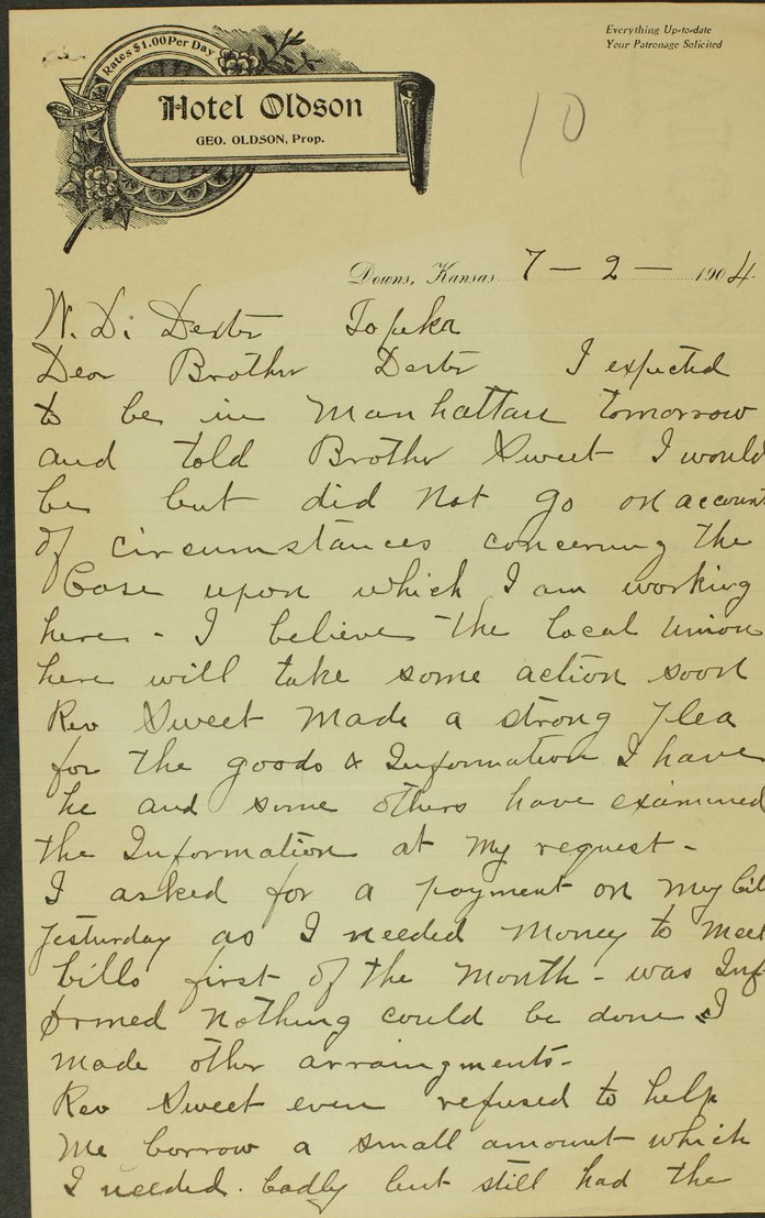 Everything Up-to-date
Your Patronage Solicited
Rates $1.00 Per Day
Hotel Oldson
GEO. OLDSON, Prop.
10
Downs, Kansas. 7 - 2 - 1904
W. D. Dexter Topeka
Dear Brother Dexter I expected
to be in Manhattan tomorrow
and told Brother Sweet I would
be but did not go on account
of circumstances concerning the
Case upon which I am working
here - I believe the local Union
here will take some action soon
Rev Sweet made a strong plea
for the goods & Information I have
he and some others have examined
the Information at my request -
I asked for a payment on my bil
Yesturday as I needed money to meet
bills first of the month - was Inf-
ormed nothing could be done & I
made other arraingments -
Rev Sweet even refused to help
me borrow a small amount which
I needed badly but still had the